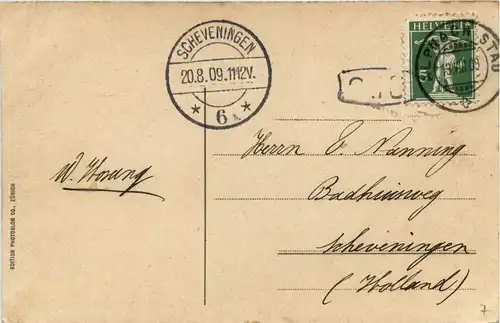 SCHEVENINGEN
20.8.09.11-12V.
* 6 *
HELVETIA
ALPNACH-STAD
W. Horung
Herrn E. Nanning
Badhuisweg
Scheveningen
(Holland)
EDITION PHOTOGLOB CO., ZÜRICH
7